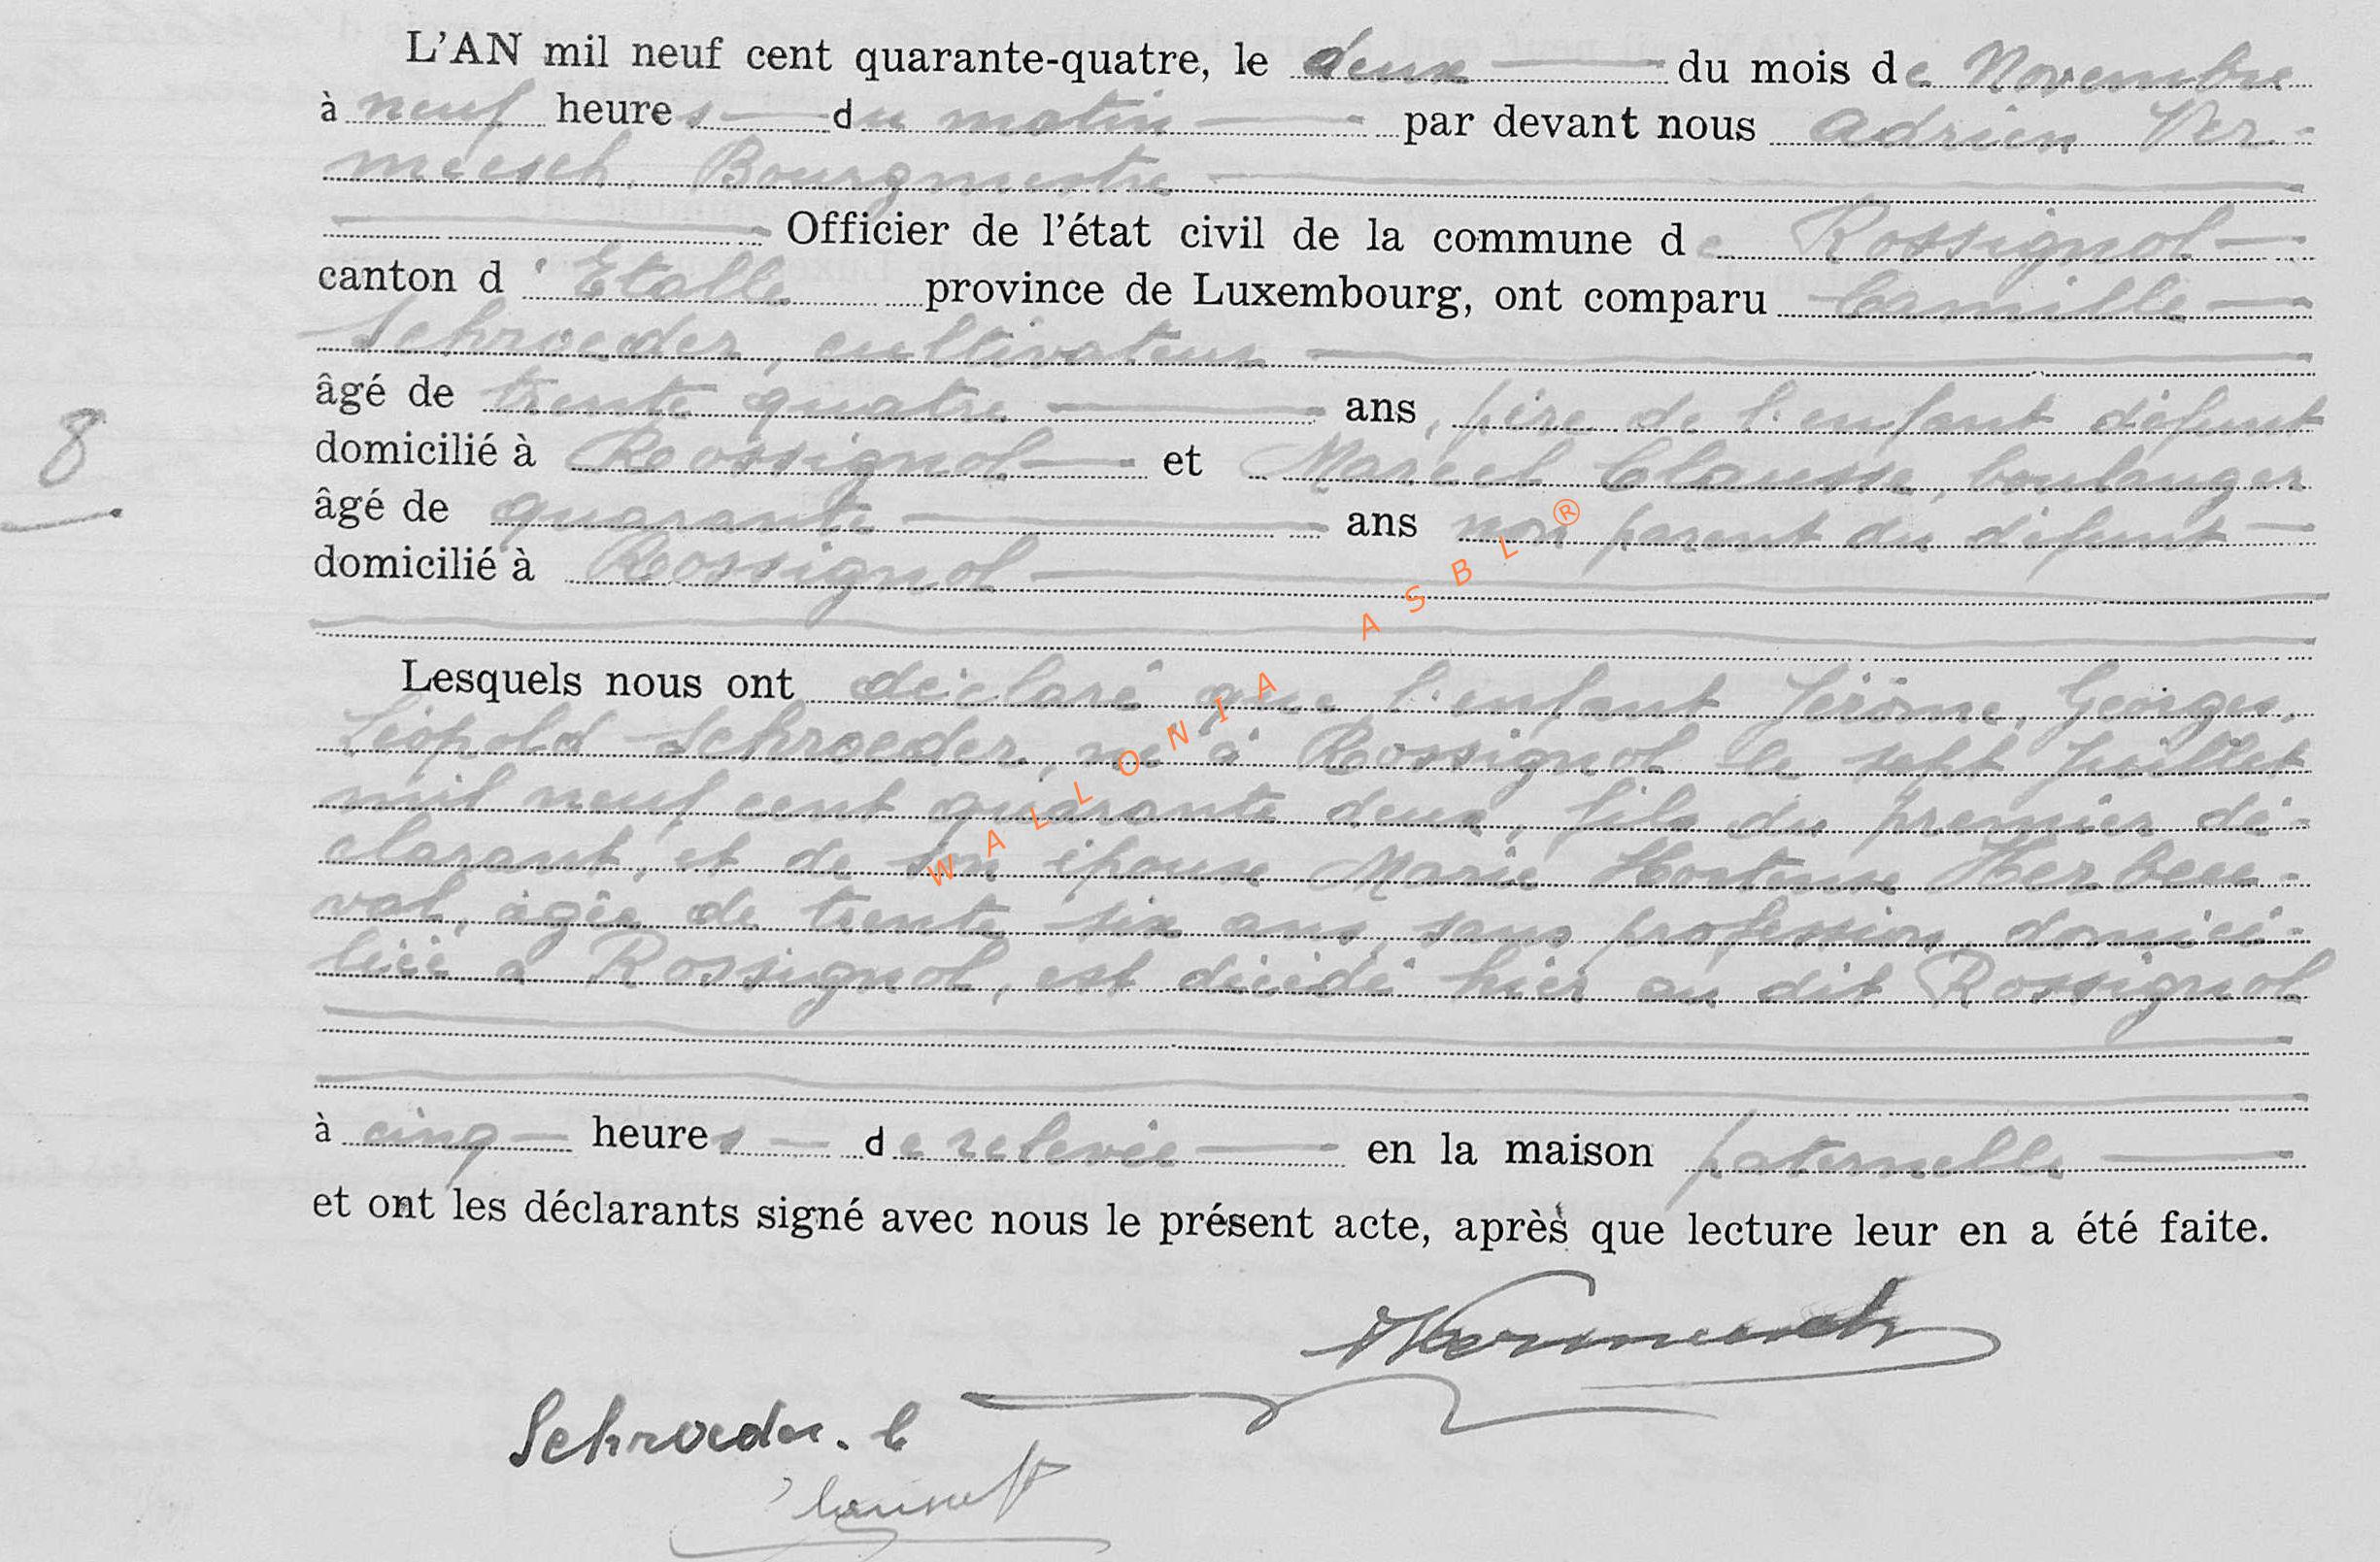 L'AN mil neuf cent quarante-quatre, le deux du mois de Novembre
à neuf heures du matin par devant nous Adrien Ver-
meesch, Bourgmestre
Officier de l'état civil de la commune de Rossignol
canton d'Etalle province de Luxembourg, ont comparu Camille
Schroeder, cultivateur
âgé de trente quatre ans, père de l'enfant défunt
8 domicilié à Rossignol et Marcel Clausse, boulanger
âgé de quarante ans non parent du défunt
domicilié à Rossignol
Lesquels nous ont déclaré que l'enfant Jérôme, Georges,
Léopold Schroeder, né à Rossignol le sept Juillet
mil neuf cent quarante deux, fils du premier dé-
clarant, et de son épouse Marie Hortense Herbeu-
val, agée de trente six ans, sans profession, domici-
liée à Rossignol, est décédé hier au dit Rossignol
à cinq heures de relevée en la maison paternelle
et ont les déclarants signé avec nous le présent acte, après que lecture leur en a été faite.
Vermeesch
Schroeder. C
WALLONIA ASBL ®